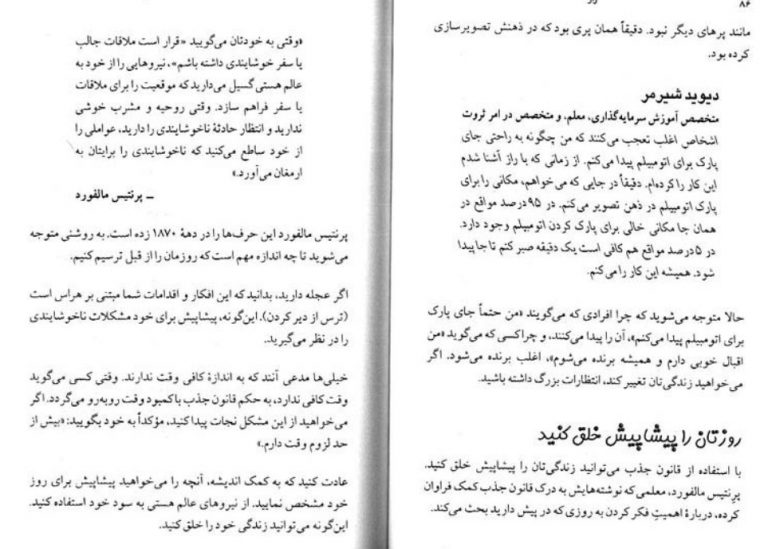 ۸۶
مانند پرهای دیگر نبود. دقیقاً همان پری بود که در ذهنش تصویرسازی
کرده بود.
دیوید شیرمر
متخصص آموزش سرمایه‌گذاری، معلم، و متخصص در امر ثروت
اشخاص اغلب تعجب می‌کنند که من چگونه به راحتی جای
پارک برای اتومبیلم پیدا می‌کنم. از زمانی که با راز آشنا شدم
این کار را کرده‌ام. دقیقاً در جایی که می‌خواهم، مکانی را برای
پارک اتومبیلم در ذهن تصویر می‌کنم. در ۹۵درصد مواقع در
همان جا مکانی خالی برای پارک کردن اتومبیلم وجود دارد.
در ۵درصد مواقع هم کافی است یک دقیقه صبر کنم تا جا پیدا
شود. همیشه این کار را می‌کنم.
حالا متوجه می‌شوید که چرا افرادی که می‌گویند «من حتماً جای پارک
برای اتومبیلم پیدا می‌کنم»، آن را پیدا می‌کنند، و چرا کسی که می‌گوید «من
اقبال خوبی دارم و همیشه برنده می‌شوم»، اغلب برنده می‌شود. اگر
می‌خواهید زندگی‌تان تغییر کند، انتظارات بزرگ داشته باشید.
روزتان را پیشاپیش خلق کنید
با استفاده از قانون جذب می‌توانید زندگی‌تان را پیشاپیش خلق کنید.
پرنتیس مالفورد، معلمی که نوشته‌هایش به درک قانون جذب کمک فراوان
کرده، دربارهٔ اهمیتِ فکر کردن به روزی که در پیش دارید بحث می‌کند.
«وقتی به خودتان می‌گویید «قرار است ملاقات جالب
یا سفر خوشایندی داشته باشم»، نیروهایی را از خود به
عالم هستی گسیل می‌دارید که موقعیت را برای ملاقات
یا سفر فراهم سازد. وقتی روحیه و مشرب خوشی
ندارید و انتظار حادثهٔ ناخوشایندی را دارید، عواملی را
از خود ساطع می‌کنید که ناخوشایندی را برایتان به
ارمغان می‌آورد.»
ـ پرنتیس مالفورد
پرنتیس مالفورد این حرف‌ها را در دههٔ ۱۸۷۰ زده است. به روشنی متوجه
می‌شوید تا چه اندازه مهم است که روزمان را از قبل ترسیم کنیم.
اگر عجله دارید، بدانید که این افکار و اقدامات شما مبتنی بر هراس است
(ترس از دیر کردن). این‌گونه، پیشاپیش برای خود مشکلات ناخوشایندی
را در نظر می‌گیرید.
خیلی‌ها مدعی آنند که به اندازهٔ کافی وقت ندارند. وقتی کسی می‌گوید
وقت کافی ندارد، به حکم قانون جذب با کمبود وقت روبه‌رو می‌گردد. اگر
می‌خواهید از این مشکل نجات پیدا کنید، مؤکداً به خود بگویید: «بیش از
حد لزوم وقت دارم.»
عادت کنید که به کمک اندیشه، آنچه را می‌خواهید پیشاپیش برای روز
خود مشخص نمایید. از نیروهای عالم هستی به سود خود استفاده کنید.
این‌گونه می‌توانید زندگی خود را خلق کنید.